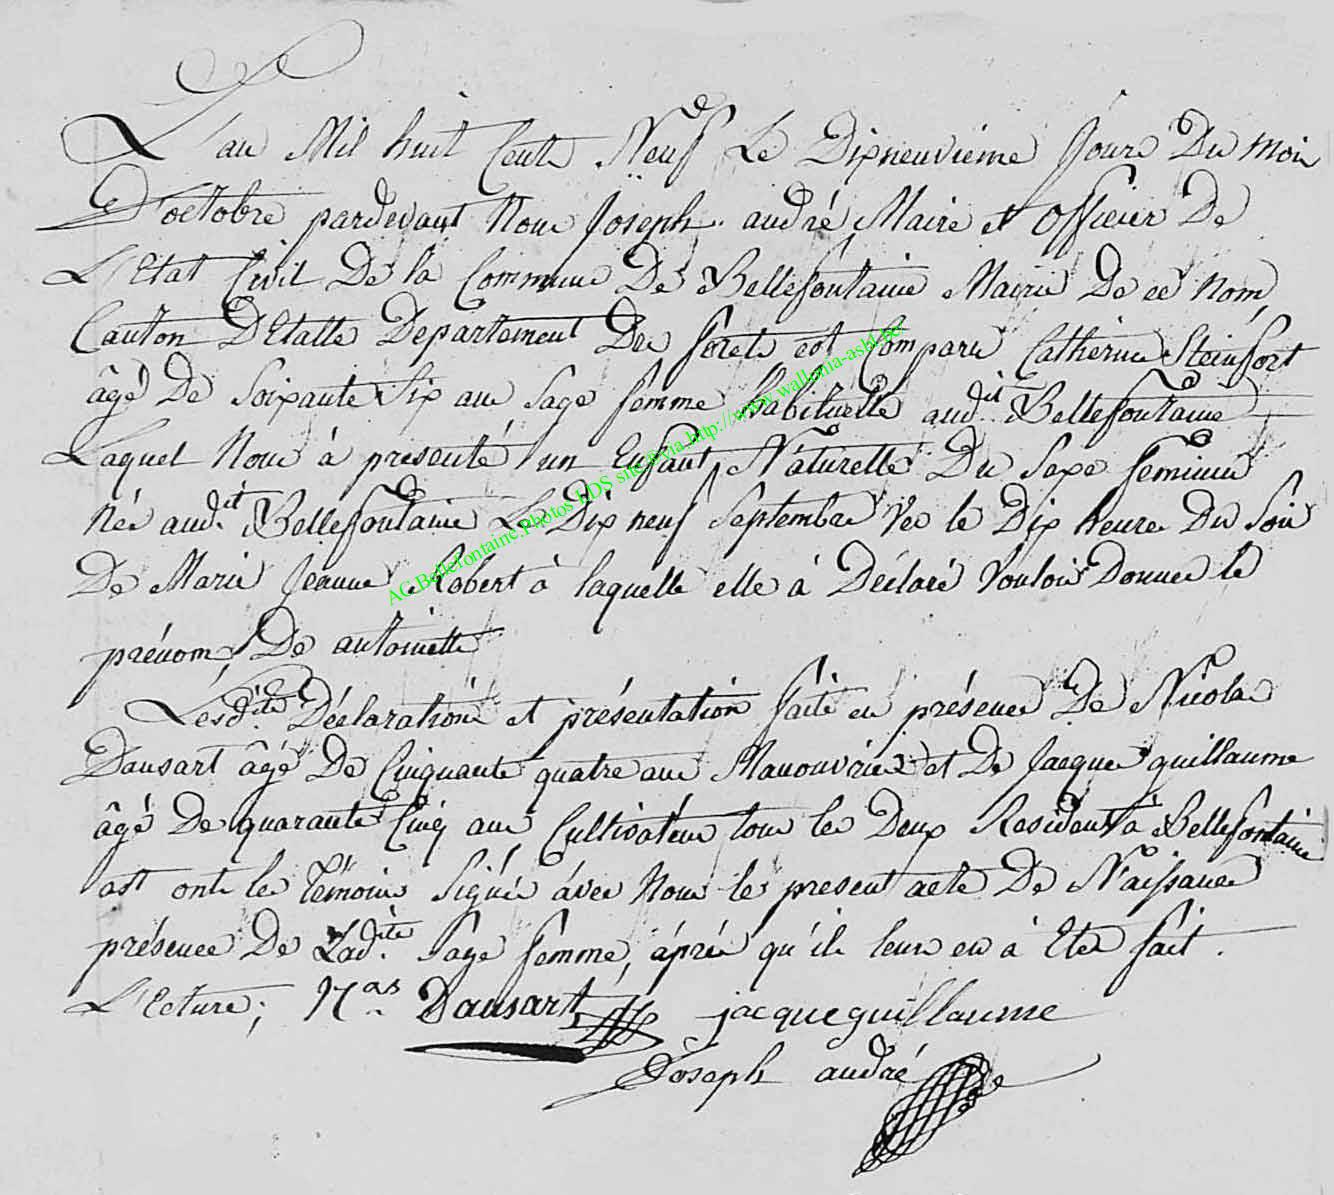 L'an Mil huit Cents Neuf Le Dixneuvième Jours Du mois
D'octobre pardevant Nous Joseph andré Maire et officier De
L'Etat Civil De la Commune De Bellefontaine Mairie De ce Nom,
Canton D'Etalle Departement Des forets est Comparu Catherine Steinfort
âgé De Soixante Six ans Sage femme habituelle aud.it Bellefontaine
Laquel Nous à presenté un Enfant Naturelle Du Sexe feminin
Née aud.it Bellefontaine Le Dix neuf Septembre Ver le Dix heure Du Soir
De Marie Jeanne Robert à laquelle elle à Déclaré Vouloir Donner le
prénom, De antoinette
Lesd.ites Déclaration et présentation faite en présence De Nicolas
Dansart âgé De Cinquante quatre ans Manouvrier et De Jacque guillaume
âgé De quarante Cinq ans Cultivateur tous les Deux Resident à Bellefontaine
ast ont les Témoins Signés avec Nous le present acte De Naissance
présence De Lad.ite Sage femme, après qu'il leurs en à Eté fait.
L'Ecture; N.as Dansart jacqueguillaume
Joseph andré
AC Bellefontaine.Photos LDS site® via http://www.wallonia-asbl.be/